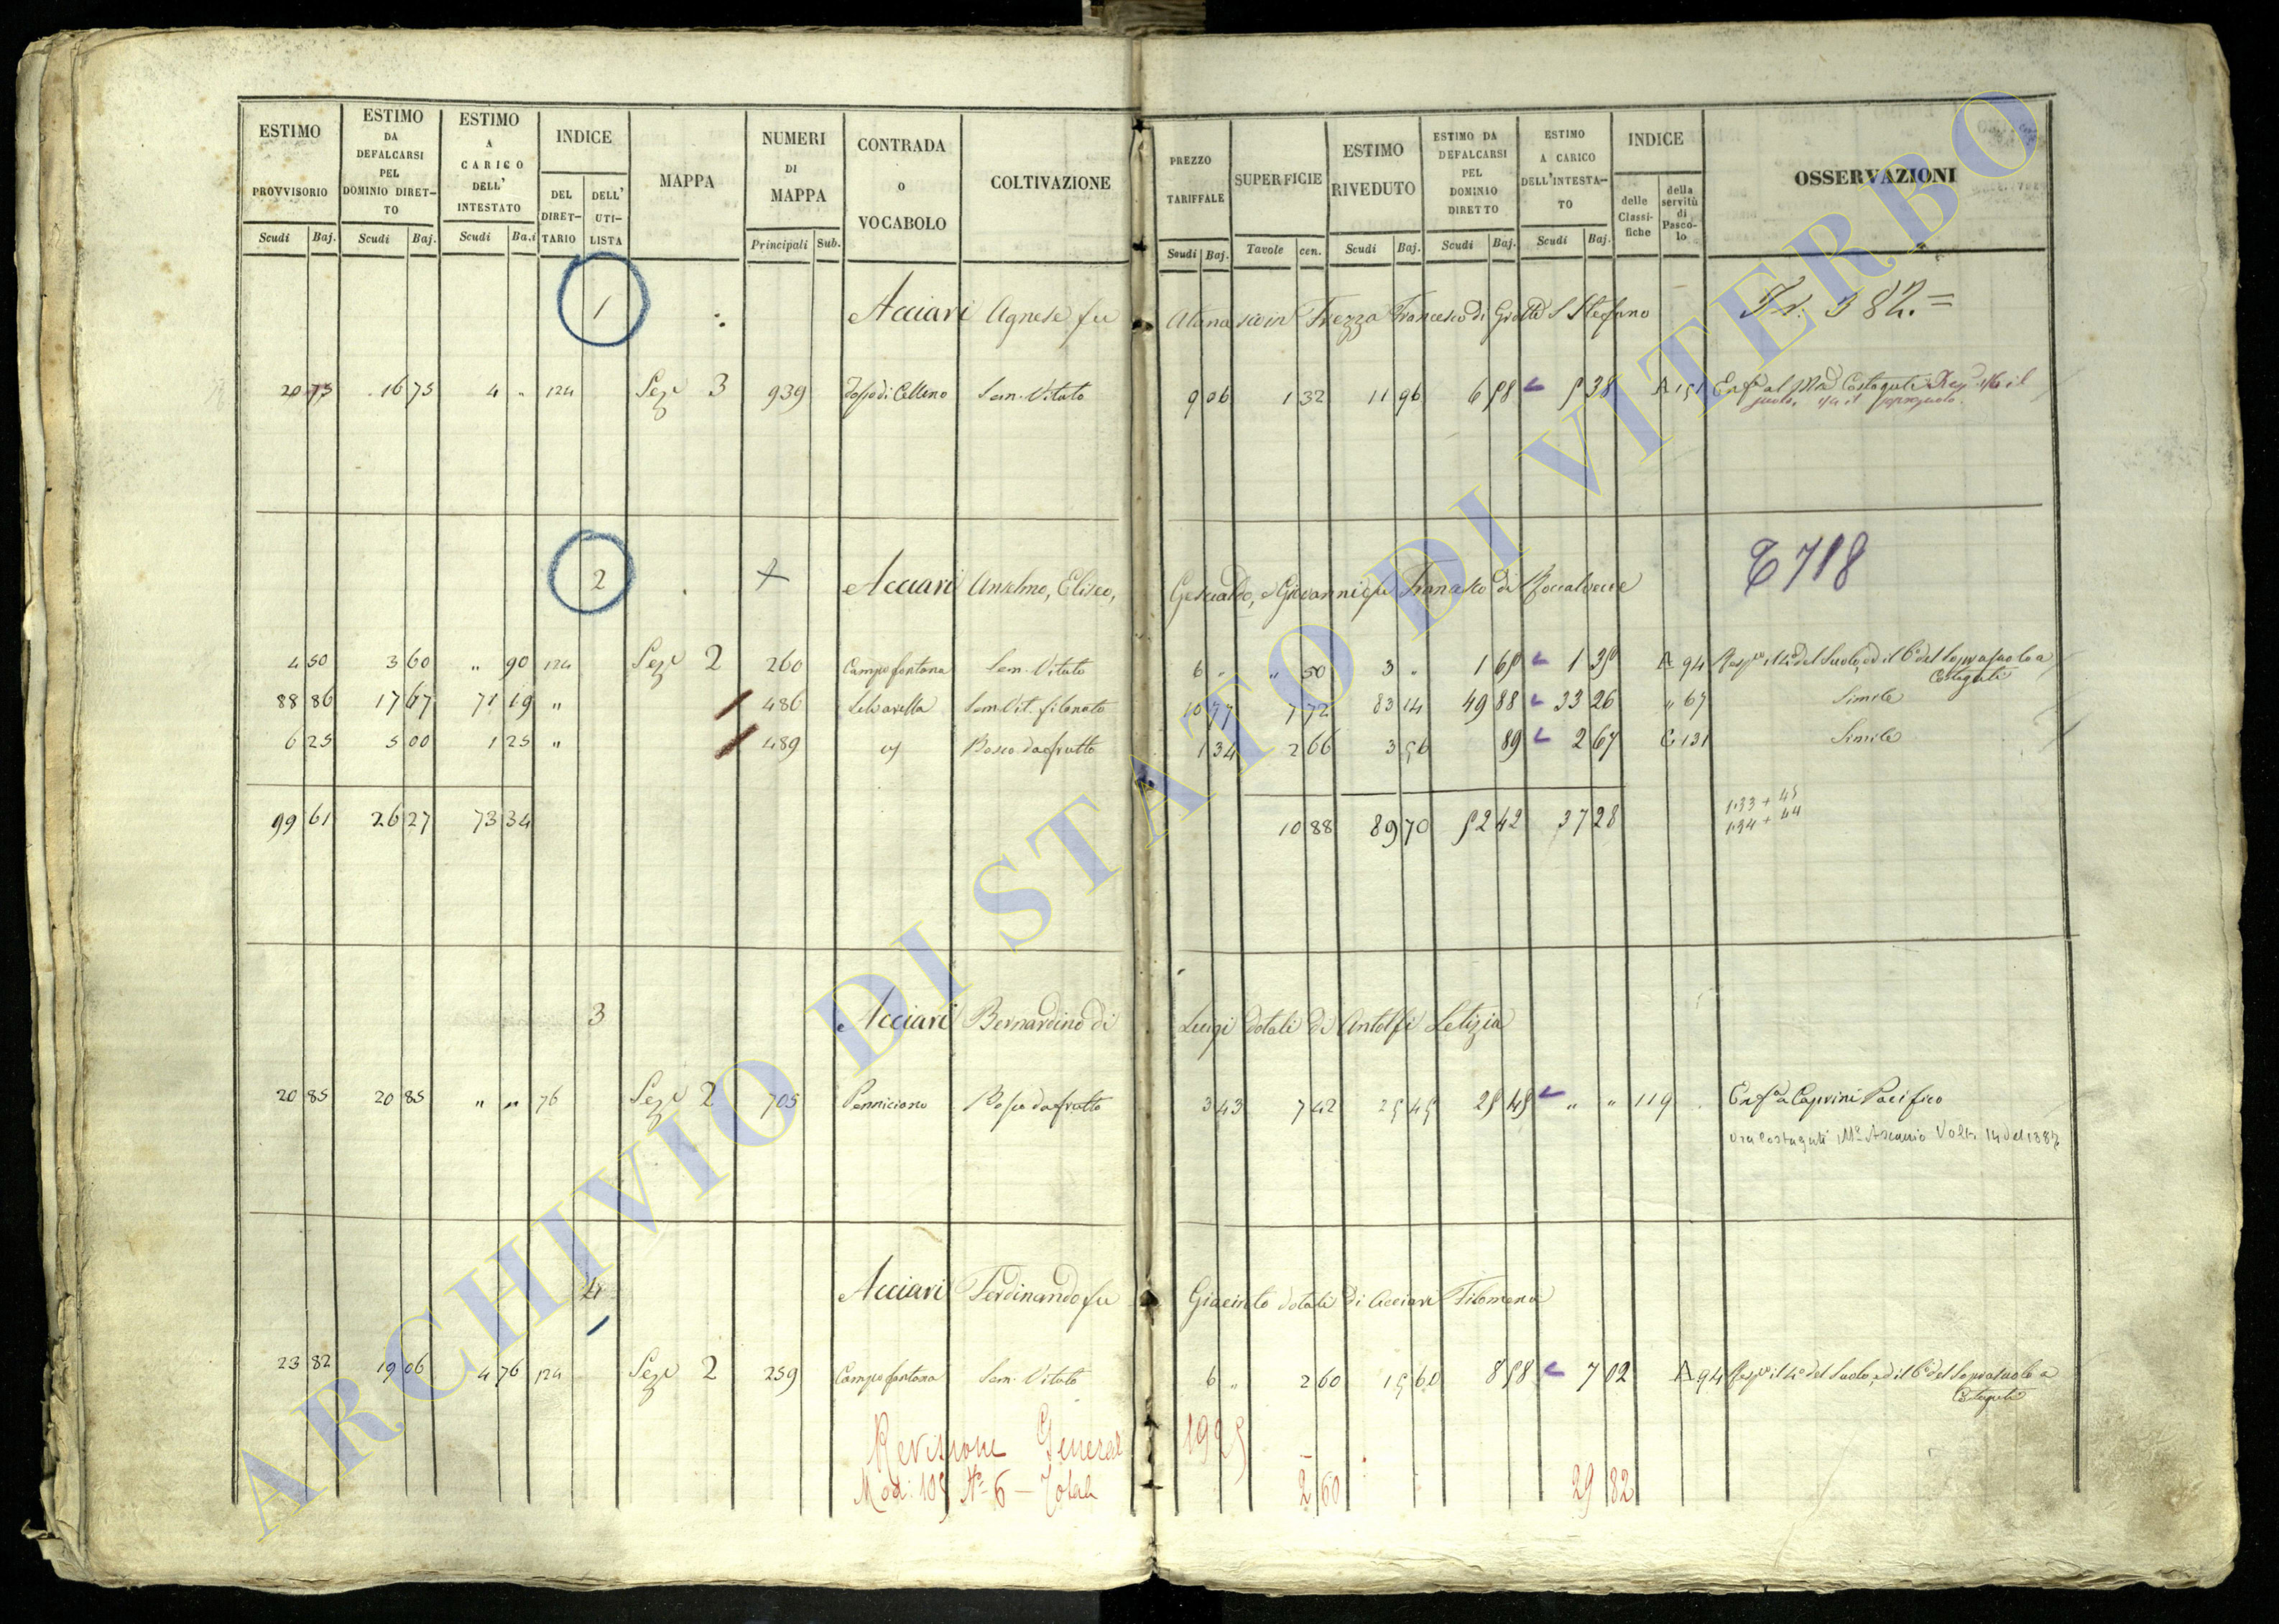 ESTIMO PROVVISORIO Scudi Baj.
ESTIMO DA DEFALCARSI PEL DOMINIO DIRET-TO Scudi Baj.
ESTIMO A CARICO DELL' INTESTATO Scudi Ba.i
INDICE DEL DIRET-TARIO DELL' UTI-LISTA
MAPPA
NUMERI DI MAPPA Principali Sub.
CONTRADA O VOCABOLO
COLTIVAZIONE
PREZZO TARIFFALE Scudi Baj.
SUPERFICIE Tavole cen.
ESTIMO RIVEDUTO Scudi Baj.
ESTIMO DA DEFALCARSI PEL DOMINIO DIRETTO Scudi Baj.
ESTIMO A CARICO DELL'INTESTA-TO Scudi Baj.
INDICE delle Classi-fiche della servitù di Pasco-lo
OSSERVAZIONI
1 Acciari Agnese fu Atanasio in Frezza Francesco di Grotte S Stefano
20 75 16 75 4 " 124 Sez 3 939 Fosso di Celleno Sem. Vitato 9 06 1 32 11 96 6 58 5 38 A 151
2 Acciari Anselmo, Eliseo, Gesualdo, e Giovanni fu di Roccalvecce 718
4 50 3 60 " 90 124 Sez 2 260 Campo fontana Sem. Vitato 6 " " 50 3 " 1 65 1 35 A 94 del Suolo, ed il 6° del Soprasuolo a Costaguti
88 86 17 67 71 19 " 486 Selvarella Sem. Vit. filonato 10 77 7 72 83 14 49 88 33 26 " 67 Simile
6 25 5 00 1 25 " 489 Bosco da frutto 1 34 2 66 3 56 89 2 67 C 131 Simile
99 61 26 27 73 34 10 88 89 70 52 42 37 28
1.33 + 45
1.34 + 44
3 Acciari Bernardino di Luigi dotali di Antolfi Letizia
20 85 20 85 " " 76 Sez 2 705 Penniciano Bosco da frutto 3 43 7 42 25 45 25 45 " " 119 Enf. a Caprini Pacifico
ora Costaguti M.e Ascanio Volt. 14 del
4 Acciari Ferdinando fu Giacinto dotali di Acciari Filomena
23 82 19 06 4 76 124 Sez 2 259 Campo fontana Sem. Vitato 6 " 2 60 15 60 8 58 7 02 A 94 il 4° del Suolo, ed il 6° del Soprasuolo a Costaguti
Revisione General 1925
Mod. 105 N° 6 — Totale 2 60 29 82
ARCHIVIO DI STATO DI VITERBO